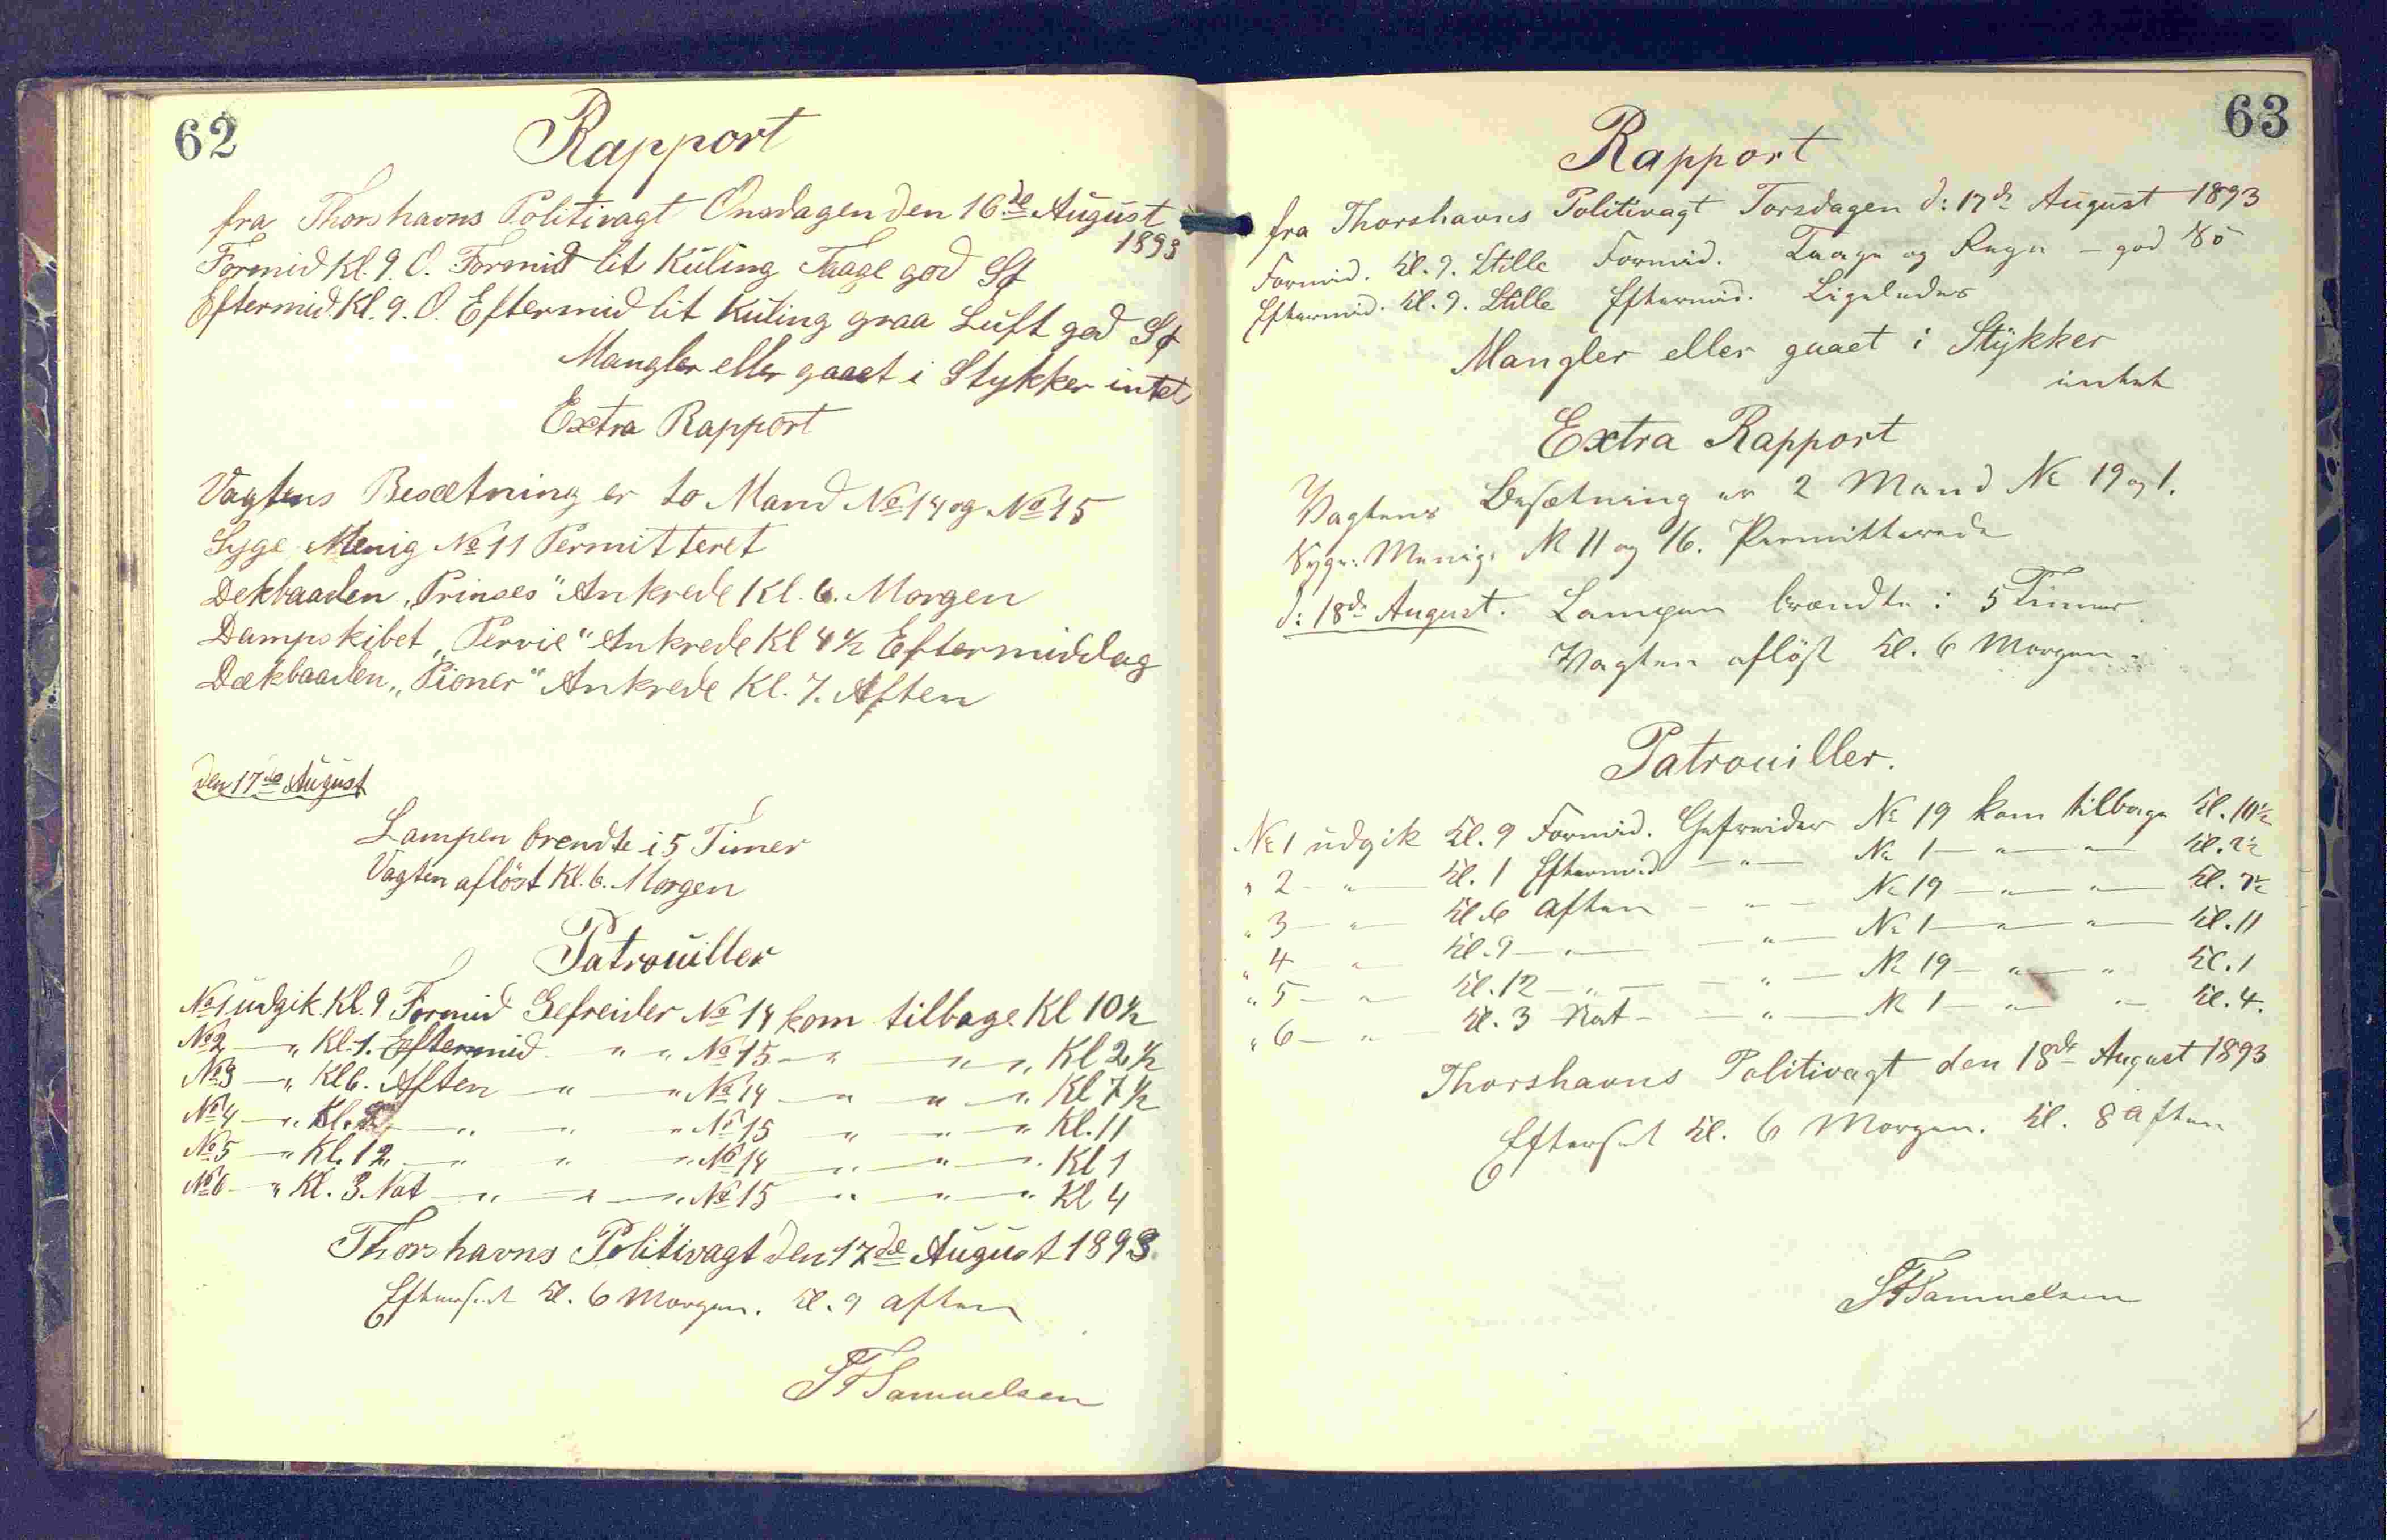 62
Rapport
fra Thorshavns Politivagt Onsdagen den 16de August
1893
Formid Kl. 9. O. Formid lit Kuling Taage god Sø
Eftermid. Kl. 9. O. Eftermid lit Kuling graa Luft god Sø
Mangler eller gaaet i Stykker intet
Extra Rapport
Vagtens Besætning er to Mand No 14 og No 15
Syge Menig No 11 Permitteret
Dekbaaden „Prinses" Ankrede Kl. 6. Morgen
Dampskibet „Pervie" Ankrede Kl 4 ½ Eftermiddag
Dækbaaden „Pioner" Ankrede Kl. 7. Aften
den 17de August
Lampen brendte i 5 Timer
Vagten afløst Kl. 6. Morgen
Patrouiller
No 1 udgik. Kl. 9. Formid Gefreider No 14 kom tilbage Kl 10 ½
No 2 — „ Kl. 1. Eftermid „ „ No 15 — „ — „ — „ Kl 2 ½
No 3 — „ Kl 6. Aften — „ — „ No 14 — „ — „ — „ Kl 7 ½
No 4 — „ Kl. — „ — „ — „ No 15 — „ — „ — „ Kl. 11
No 5 — „ Kl. 12 — „ — „ — „ No 14 — „ — „ — „ Kl 1
No 6 — „ Kl. 3. Nat — „ — „ — „ No 15 — „ — „ — „ Kl 4
Thorshavns Politivagt den 17de August 1893
Efterset Kl. 6 Morgen. Kl. 9 aften
Samuelsen
63
Rapport
fra Thorshavns Politivagt Torsdagen d: 17de August 1893
Formid. Kl. 9. Stille Formid. Taage og Regn — god Sö
Eftermid. Kl. 9. Stille Eftermid. Ligeledes
Mangler eller gaaet i Stykker
intet
Extra Rapport
Vagtens Besætning er 2 Mand No 19 og 1.
Syge: Menige No 11 og 16. Permitterede
d: 18de August. Lampen brændte i 5 Timer
Vagten aflöst Kl. 6 Morgen.
Patrouiller.
No 1 udgik Kl. 9 Formid. Gefreider No 19 kom tilbage Kl. 10½
„ 2 — „ — Kl. 1 Eftermid — „ — No 1 — „ — „ — Kl. 2½
„ 3 — „ — Kl 6 Aften — „ — No 19 — „ — „ — Kl. 7½
„ 4 — „ — Kl. 9 — „ — — „ — No 1 — „ — „ — Kl. 11
„ 5 — „ — Kl. 12 — „ — — „ — No 19 — „ — „ Kl. 1
„ 6 — „ — Kl. 3 Nat — — „ — No 1 — „ — „ — Kl. 4.
Thorshavns Politivagt den 18de August 1893
Efterset Kl. 6 Morgen. Kl. 8 aften
Samuelsen